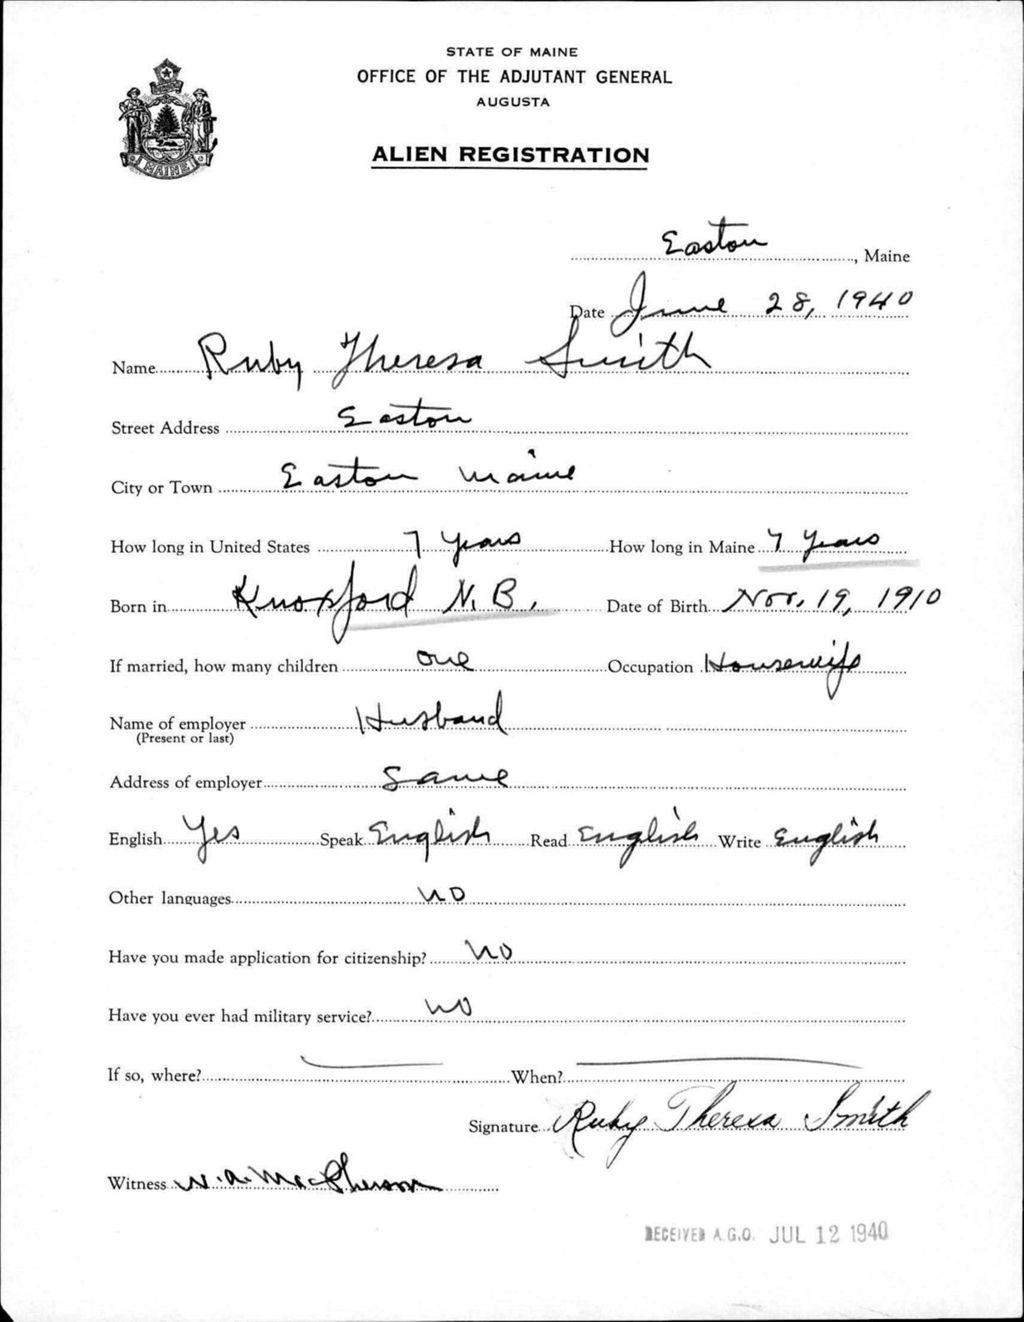 STATE OF MAINE
OFFICE OF THE ADJUTANT GENERAL
AUGUSTA
ALIEN REGISTRATION
MAINE
Easton, Maine
Date June 28, 1940
Name Ruby Theresa Smith
Street Address Easton
City or Town Easton Maine
How long in United States 7 Years How long in Maine 7 Years
Born in Knoxford N.B. Date of Birth Nov. 19, 1910
If married, how many children one Occupation Housewife
Name of employer Husband
(Present or last)
Address of employer Same
English Yes Speak English Read English Write English
Other languages no
Have you made application for citizenship? No
Have you ever had military service? no
If so, where? When?
Signature Ruby Theresa Smith
Witness W. A. McPherson
RECEIVED A.G.O. JUL 12 1940